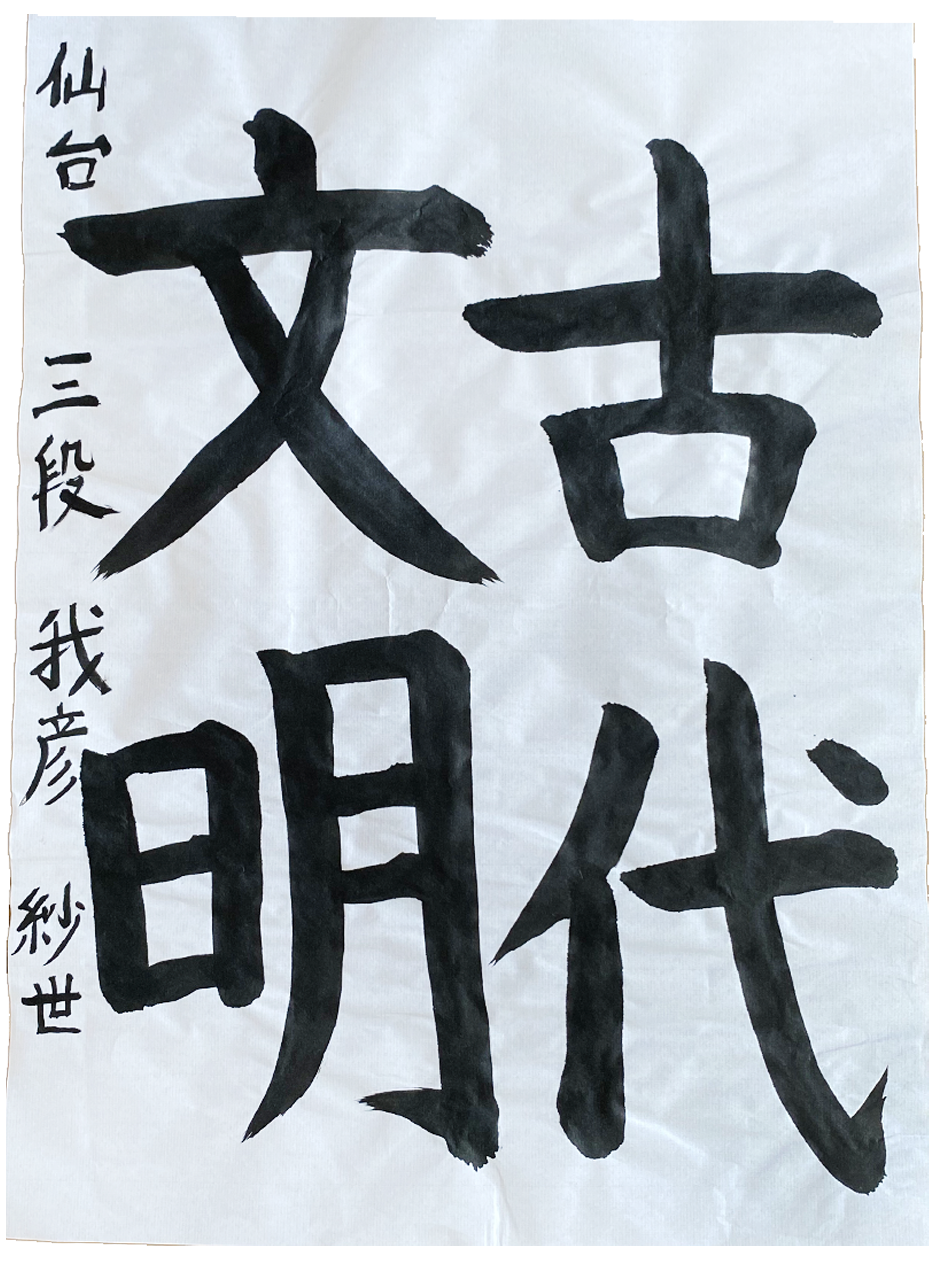 古代
文明
仙台 三段 我彦 紗世